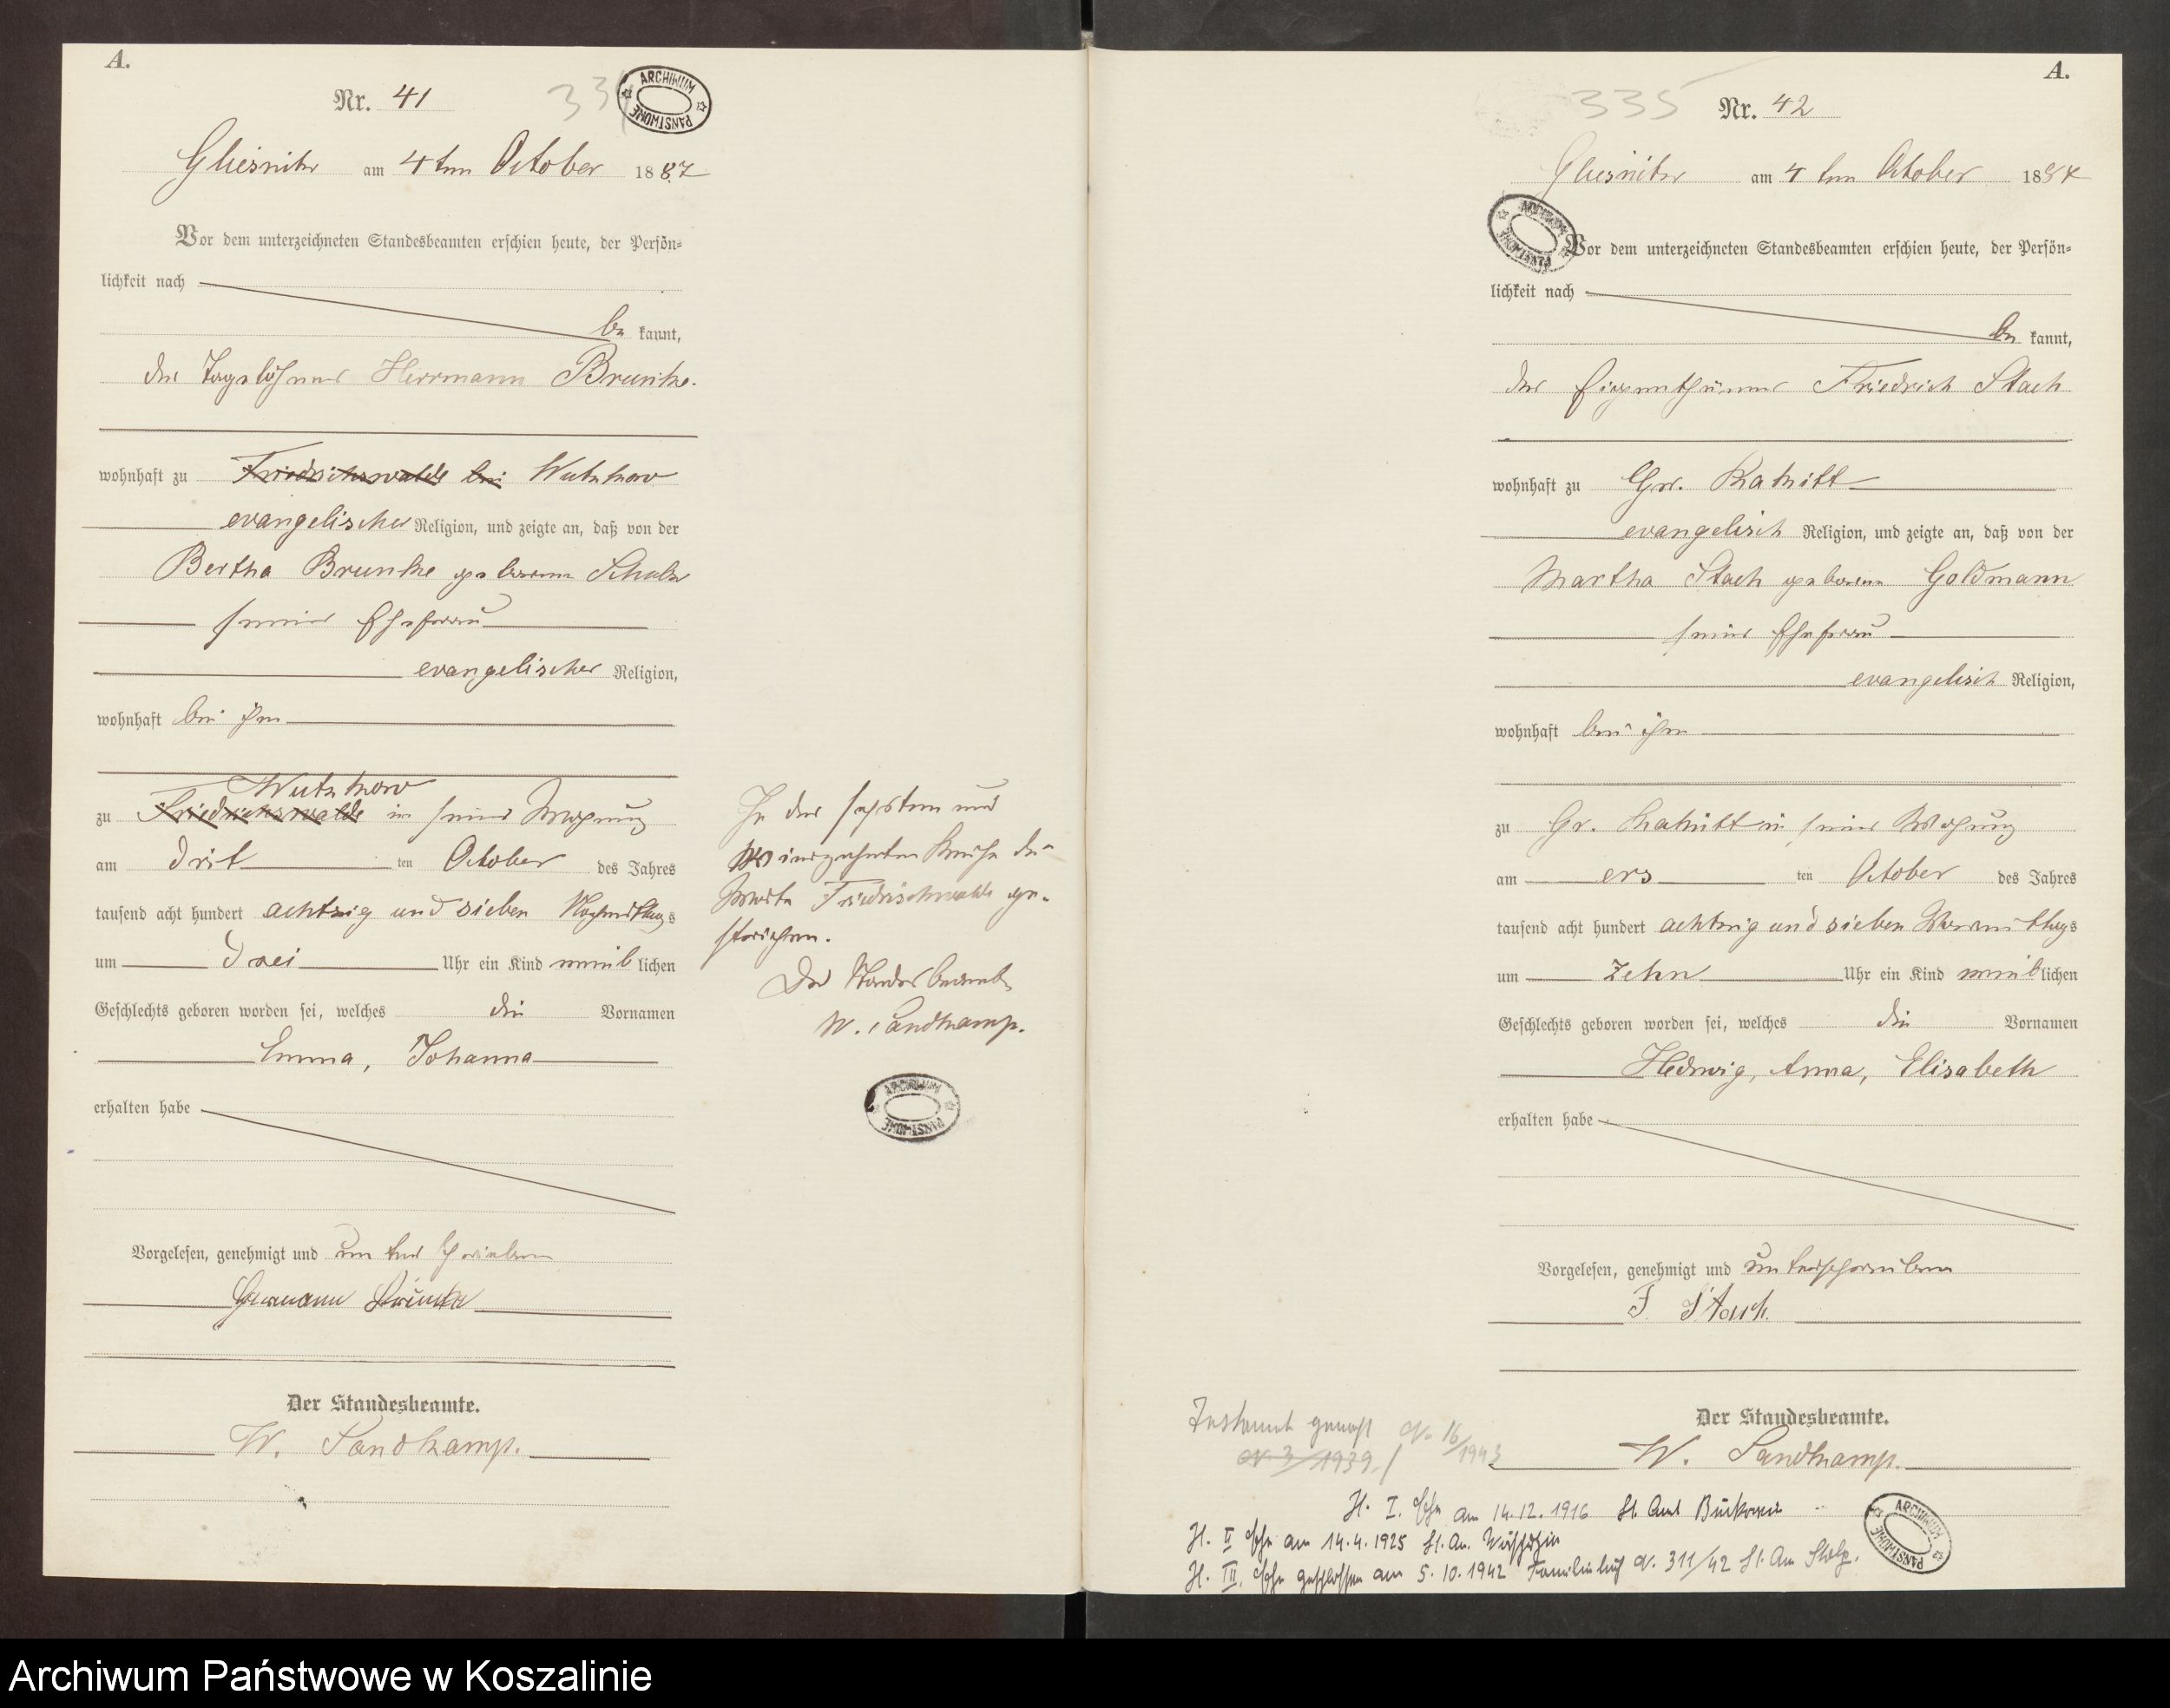 A.
Nr. 41
334
ARCHIWUM PAŃSTWOWE
Gliesnitz am 4ten October 1887
Vor dem unterzeichneten Standesbeamten erschien heute, der Persön=
lichkeit nach
be kannt,
der Tagelöhner Herrmann Brunke.
wohnhaft zu Friedrichswalde bei Wutzkow
evangelischer Religion, und zeigte an, daß von der
Bertha Brunke geborene Schulz
seiner Ehefrau
evangelischer Religion,
wohnhaft bei ihm
Wutzkow
zu Friedrichswalde in seiner Wohnung
am drit ten October des Jahres
tausend acht hundert achtzig und sieben Nachmittags
um drei Uhr ein Kind weib lichen
Geschlechts geboren worden sei, welches die Vornamen
Emma, Johanna
erhalten habe
Vorgelesen, genehmigt und unterschrieben
Hermann Brunke
Der Standesbeamte.
W. Sandkamp.
In der sechsten und
vierzehnten Reihe die
Worte Friedrichswalde ge-
strichen.
Der Standesbeamte
W. Sandkamp.
ARCHIWUM PAŃSTWOWE
A.
335
Nr. 42
Gliesnitz am 4ten October 1887
ARCHIWUM PAŃSTWOWE
Vor dem unterzeichneten Standesbeamten erschien heute, der Persön=
lichkeit nach
be kannt,
der Eigenthümer Friedrich Stach
wohnhaft zu Gr. Rakitt
evangelisch Religion, und zeigte an, daß von der
Martha Stach geborene Goldmann
seiner Ehefrau
evangelisch Religion,
wohnhaft bei ihm
zu Gr. Rakitt in seiner Wohnung
am ers ten October des Jahres
tausend acht hundert achtzig und sieben Vormittags
um zehn Uhr ein Kind weiblichen
Geschlechts geboren worden sei, welches die Vornamen
Hedwig, Anna, Elisabeth
erhalten habe
Vorgelesen, genehmigt und unterschrieben
F. Stach.
Der Standesbeamte.
W. Sandkamp.
Testament gemacht N. 16/1943
N. 3/1939.
H. I. Ehe am 14.12.1916 St. Amt
H. II Ehe am 14.4.1925 St. Am.
H. III. Ehe geschlossen am 5.10.1942 Familienbuch N. 311/42 St. Am Stolp.
ARCHIWUM PAŃSTWOWE
Archiwum Państwowe w Koszalinie